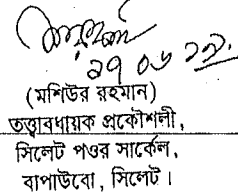 ২৭ ০৬ ২২
(মশিউর রহমান)
তত্ত্বাবধায়ক প্রকৌশলী,
সিলেট পওর সার্কেল,
বাপাউবো, সিলেট।